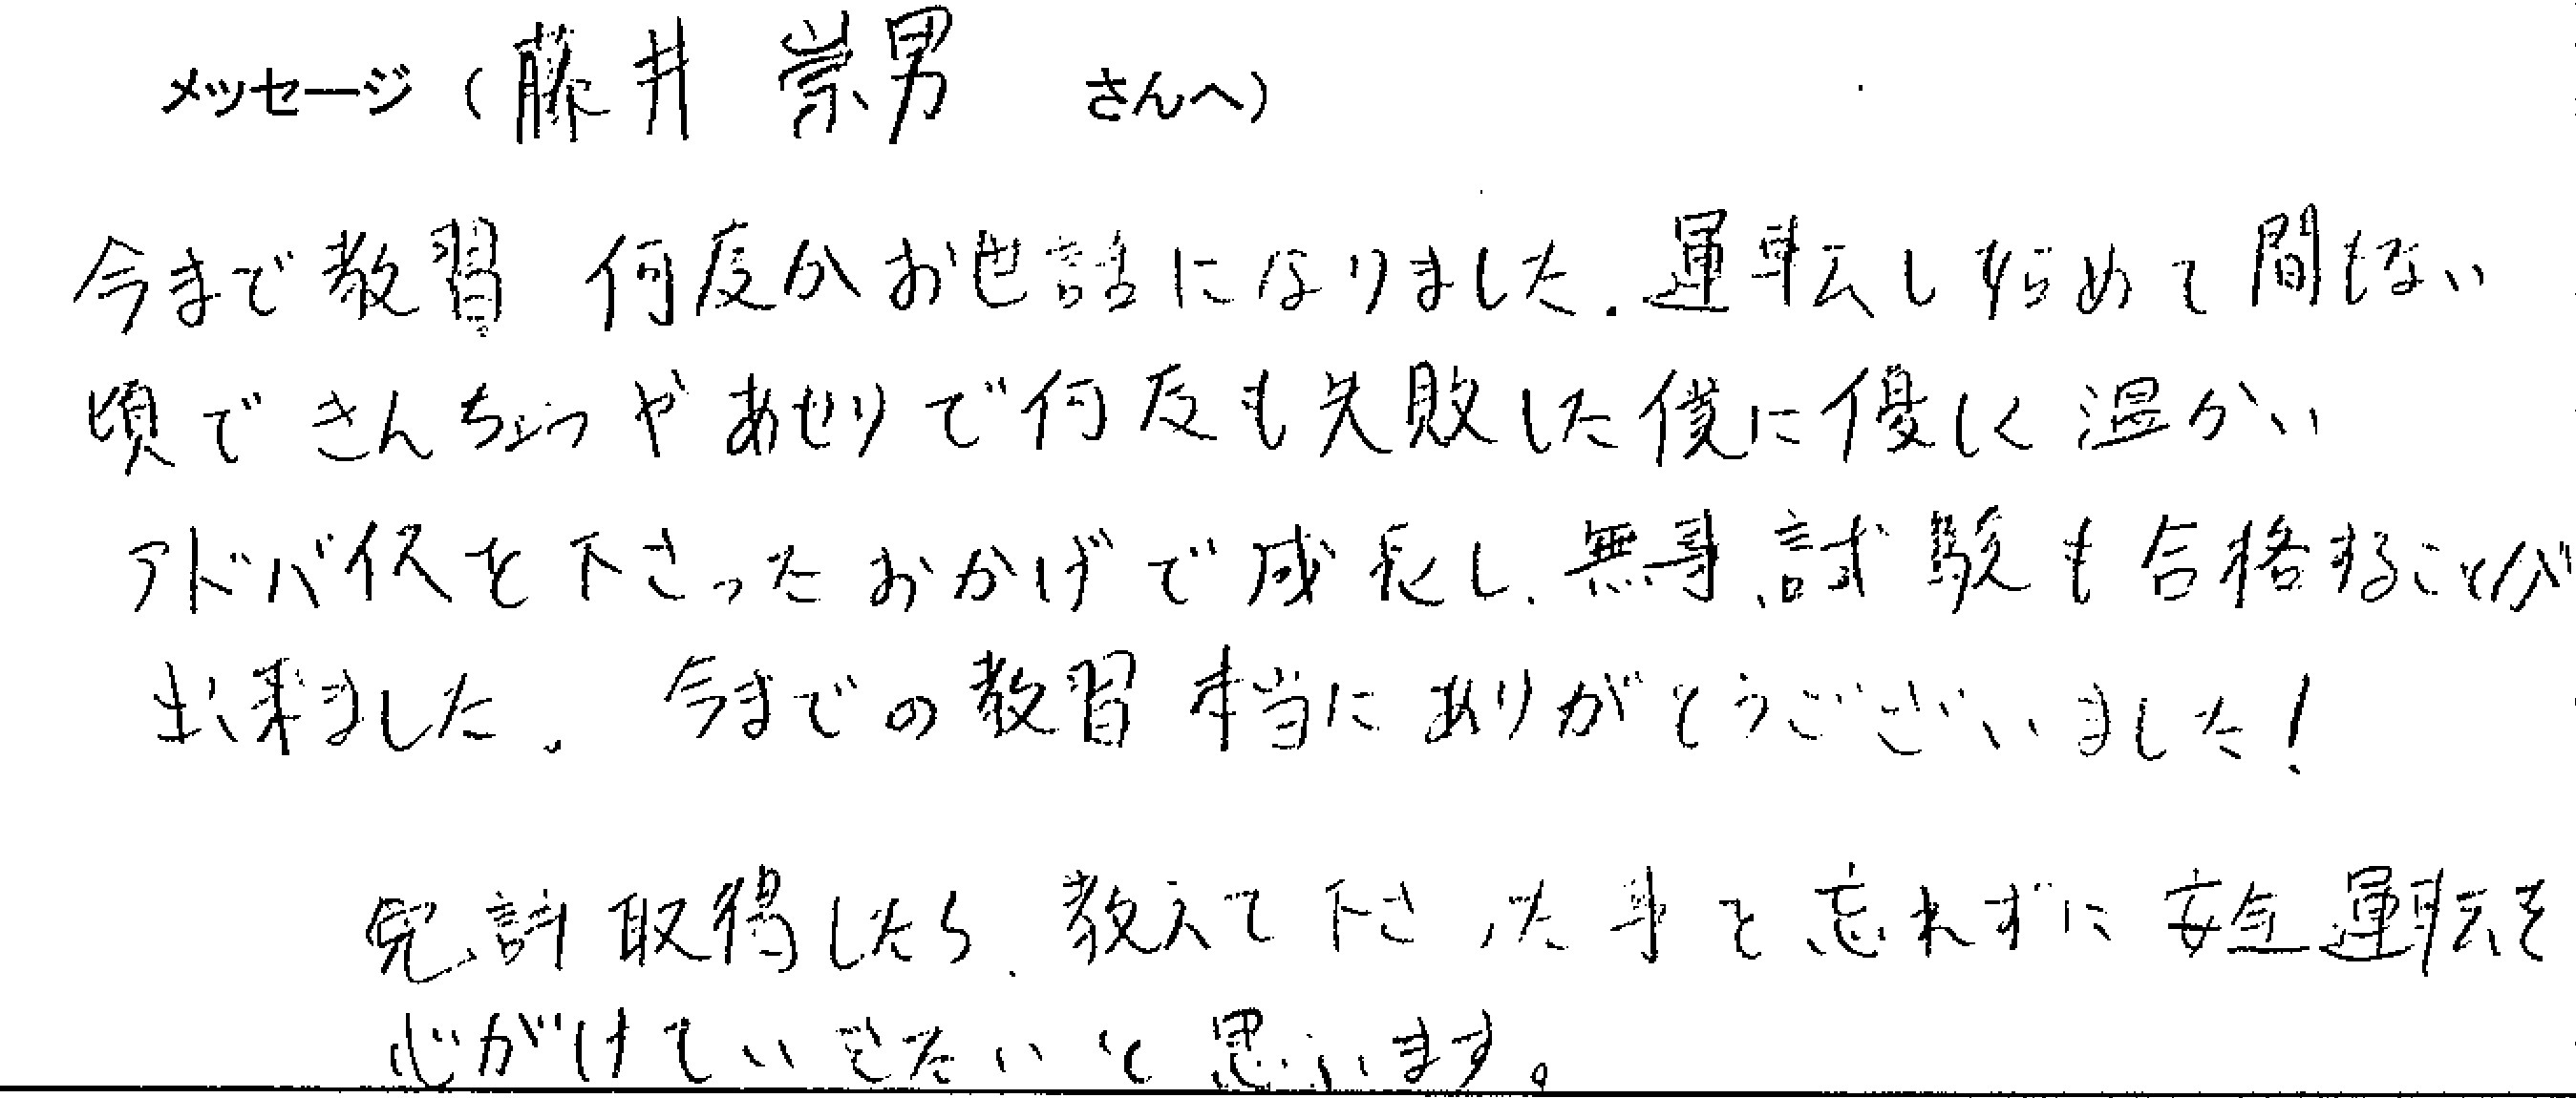 メッセージ（藤井 崇男 さんへ）
今まで教習 何度かお世話になりました．運転し始めて間もない
頃できんちょうやあせりで何度も失敗した僕に優しく温かい
アドバイスを下さったおかげで成長し、無事、試験も合格することが
出来ました． 今までの教習 本当にありがとうございました！
免許取得したら、教えて下さった事を忘れずに安全運転を
心がけていきたいと思います。